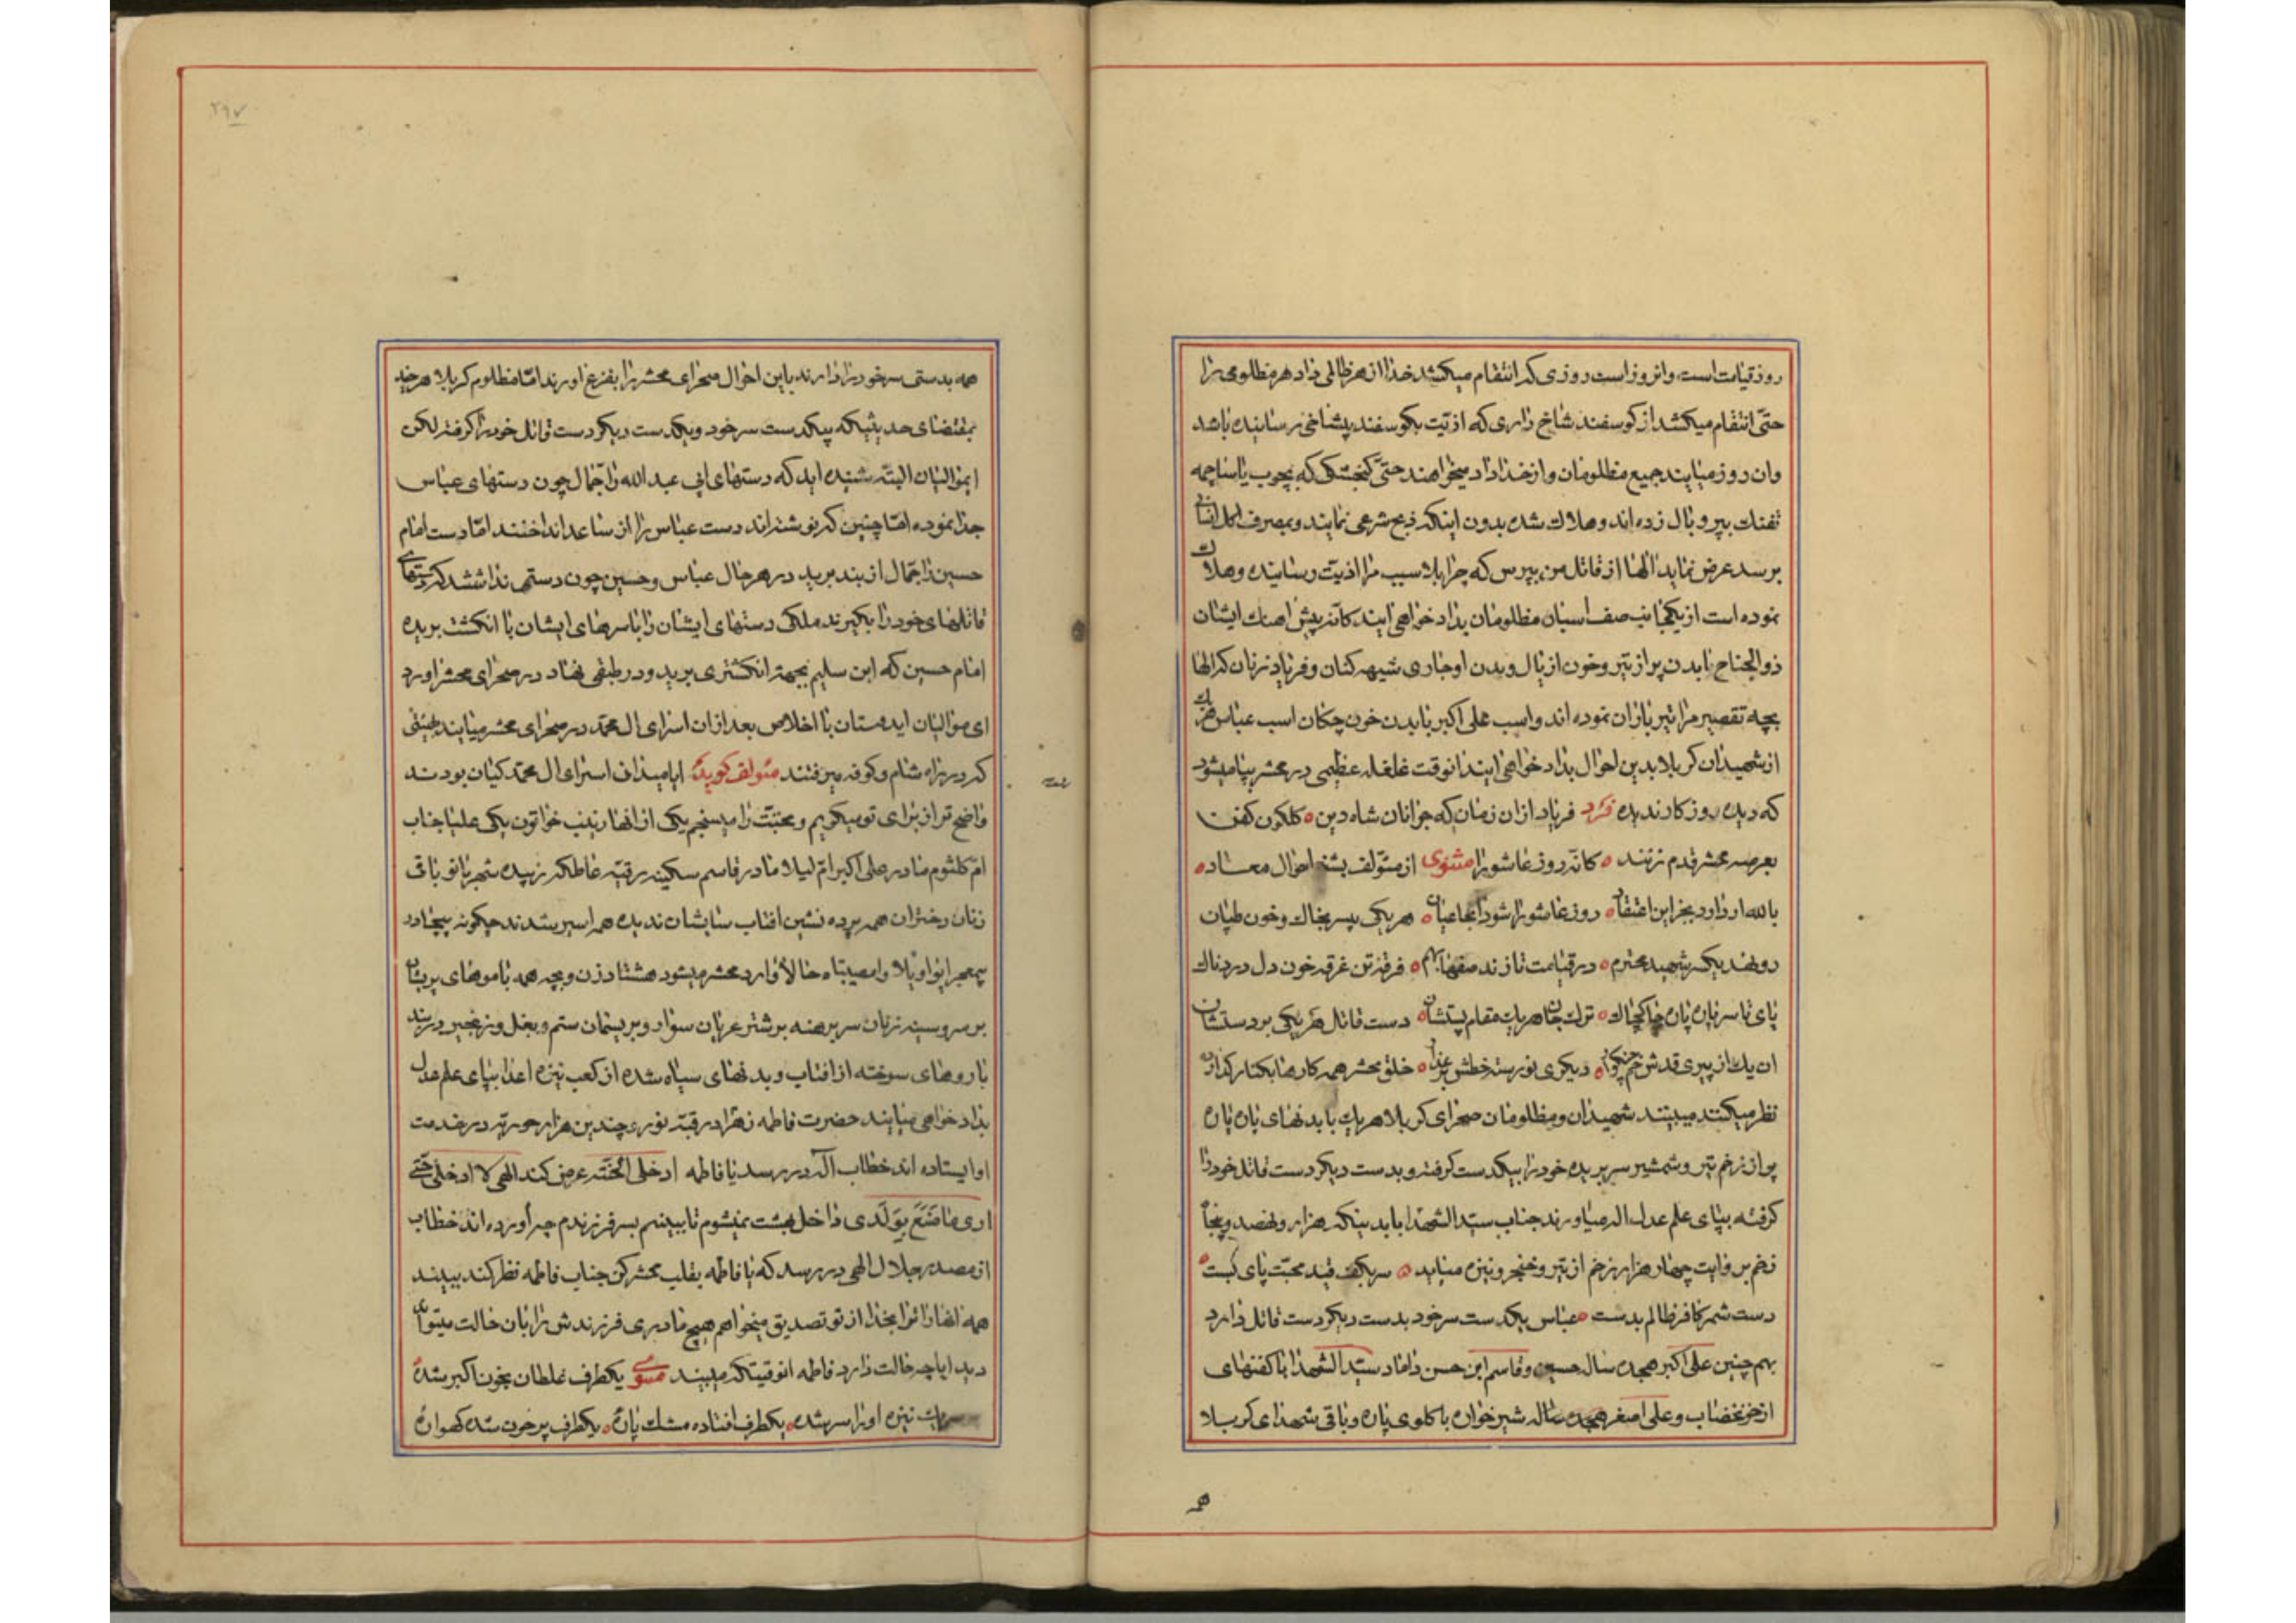 روز قیامت است و انروز است روزی که انتقام میکشد خدا از هر ظالمی داد هر مظلومی را
حتّی انتقام میکشد از کوسفند شاخ داری که اذیت بکوسفند بیشاخی رسانیده باشد
وان روز میایند جمیع مظلومان و از خدا داد میخواهند حتّی کنجشکی که بچوب یا ساچمه
تفنک بپر و بال زده اند و هلاک شده بدون اینکه ذبح شرعی نمایند و بمصرف اکل انسانی
برسد عرض نماید الها از قاتل من بپرس که چرا بلا سبب مرا اذیت رسانیده و هلاک
نموده است از یکجانب صف اسبان مظلومان بداد خواهی ایند کانه پیش اهنک ایشان
ذوالجناح با بدن پر از تیر و خون از یال و بدن او جاری شیهه کنان و فریاد زنان که الها
بچه تقصیر مرا تیر باران نموده اند و اسب علی اکبر با بدن خون چکان اسب عباس هر یک
از شهیدان کربلا بدین احوال بداد خواهی ایند انوقت غلغله عظیمی در محشر بپا میشود
که دیده روزکار ندیده فرد فریاد از ان زمان که جوانان شاه دین کلکون کفن
بعرصه محشر قدم زنند کانه روز عاشورا مثنوی از مئولف بشنو احوال معاد
بالله ار دارد بجز این اعتقاد روز عاشورا شود انجا عیان هر یکی پیر بخاک و خون طپان
رو نهند یکسر شهید محترم در قیامت تازند صفها بهم فرقه تن غرقه خون دل دردناک
پای تا سر پاره پاره چاک چاک ترک جان هر یک مقام پستشان دست قاتل هر یکی بر دستشان
ان یک از پیری قدش خم چون کمان دیکری نورسته خطش بر عذار خلق محشر همه کارها بکنار کذارند
نظر میکنند میبینند شهیدان و مظلومان صحرای کربلا هر یک با بدنهای پاره پاره
پر از زخم تیر و شمشیر سر بریده خود را بیکدست کرفته و بدست دیکر دست قاتل خود را
کرفته بپای علم عدل اله میاورند جناب سید الشهدا با بدنیکه هزار و نهصد و پنجاه
زخم بروایت چهار هزار زخم از تیر و خنجر و نیزه میاید سر بکف قید محبت پای بست
دست شمر کافر ظالم بدست عباس یکدست سر خود بدست دیکر دست قاتل دارد
بهم چنین علی اکبر هجده ساله حسین و قاسم ابن حسن داماد سید الشهدا با کفنهای
از خون خضاب و علی اصغر ساله شیر خواره با کلوی پاره و باقی شهدای کربلا
همه
۲۹۷
همه بدستی سر خود را دارند باین احوال صحرای محشر را بفزع اورند امّا مظلوم کربلا هر چند
بمقتضای حدیثیکه بیکدست سر خود و بیکدست دیکر دست قاتل خود را کرفته لکن
ایموالیان البته شنیده اید که دستهای ابی عبد الله را جمّال چون دستهای عباس
جدا نموده امّا چنین که نوشته اند دست عباس را از ساعد انداختند امّا دست امام
حسین را جمّال از بند برید در هر حال عباس و حسین چون دستی نداشتند که دستهای
قاتلهای خود را بکیرند ملکی دستهای ایشان را با سرهای ایشان با انکشت بریده
امام حسین که ابن سلیم بجهة انکشتری برید و در طبقی نهاد در صحرای محشر اورد
ای موالیان ایدوستان با اخلاص بعد از ان اسرای ال محمد در صحرای محشر میایند بهیئتی
که در راه شام و کوفه میرفتند مئولف کوید ایا میدانی اسرای ال محمد کیان بودند
واضح تر از برای تو میکویم و محبتت را میسنجم یکی از انها زینب خواتون یکی علیا جناب
امّ کلثوم مادر علی اکبر امّ لیلا مادر قاسم سکینه رقیه عاطکه زبیده شهربانو باقی
زنان دختران همه پرده نشین افتاب سایشان ندیده همه اسیر شدند چکونه بیچادر
بیمعجر ایواویلا وامصیبتاه حالا وارد محشر میشود هشتاد زن و بچه همه با موهای پریشان
بر سر و سینه زنان سر برهنه بر شتر عریان سوار و بریسمان ستم و بغل و زنجیر دربند
با روهای سوخته از افتاب و بدنهای سیاه شده از کعب نیزه اعدا بپای علم عدل
بداد خواهی میایند حضرت فاطمه زهرا در قبّه نوری چندین هزار حوریّه در خدمت
او ایستاده اند خطاب اله در رسد یا فاطمه ادخلی الجنّته عرض کند الهی لا ادخلی حتّی
اری ما صَنَعَ بِوَلَدی داخل بهشت نمیشوم تا ببینم بسر فرزندم چه اورده اند خطاب
از مصدر جلال الهی در رسد که یا فاطمه بقلب محشر کن جناب فاطمه نظر کند ببیند
همه انها را ترا بخدا از تو تصدیق میخواهم هیچ مادری فرزندش را بان حالت میتواند
دید ایا چه حالت دارد فاطمه انوقتیکه میبیند مثنوی یکطرف غلطان بخون اکبر شده
نیزه او را سر شده یکطرف افتاده مشک پاره یکطرف پر خون شده کهواره